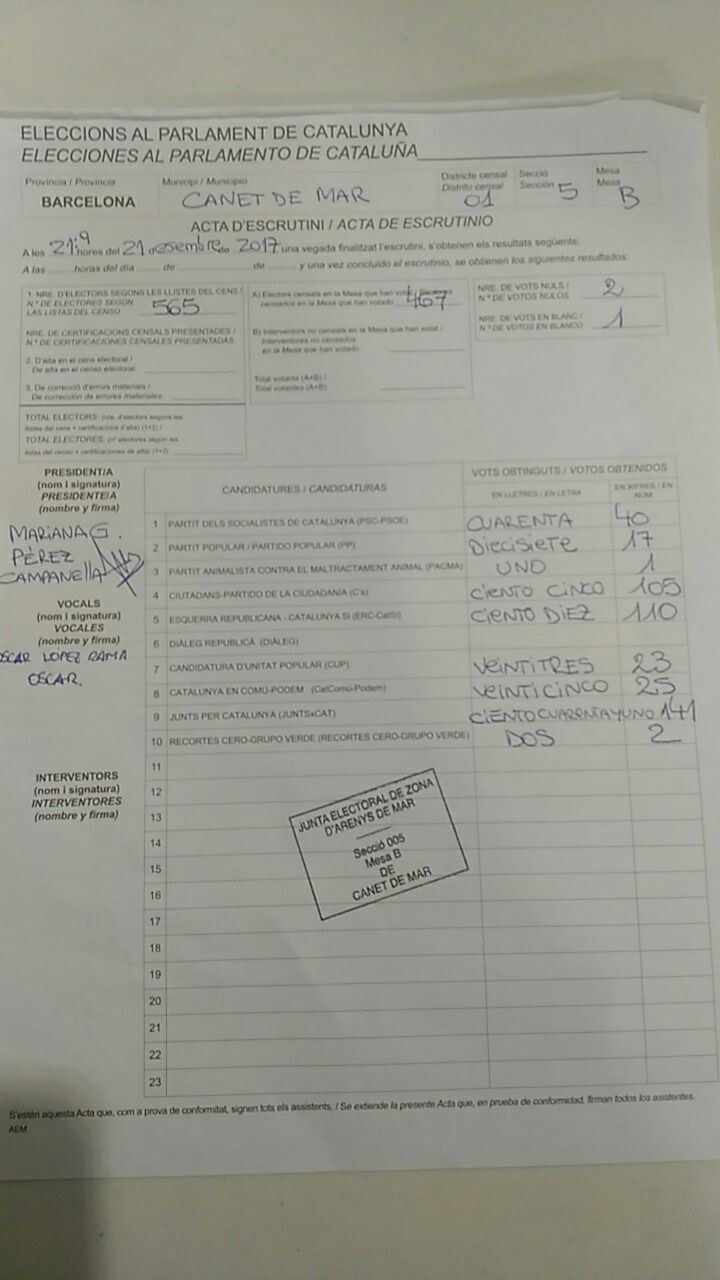 ELECCIONS AL PARLAMENT DE CATALUNYA
ELECCIONES AL PARLAMENTO DE CATALUÑA
Província / Provincia
BARCELONA
Municipi / Municipio
CANET DE MAR
Districte censal
Distrito censal
01
Secció
Sección
5
Mesa
Mesa
B
ACTA D'ESCRUTINI / ACTA DE ESCRUTINIO
A les 21:9 hores del 21 desembre de 2017 una vegada finalitzat l'escrutini, s'obtenen els resultats següents:
A las horas del día de de , y una vez concluido el escrutinio, se obtienen los siguientes resultados:
1. NRE. D'ELECTORS SEGONS LES LLISTES DEL CENS /
N.º DE ELECTORES SEGÚN
LAS LISTAS DEL CENSO
565
NRE. DE CERTIFICACIONS CENSALS PRESENTADES /
N.º DE CERTIFICACIONES CENSALES PRESENTADAS
2. D'alta en el cens electoral /
De alta en el censo electoral:
3. De correcció d'errors materials /
De corrección de errores materiales:
TOTAL ELECTORS: (nre. d'electors segons les
llistes del cens + certificacions d'alta) (1+2) /
TOTAL ELECTORES: (nº electores según las
listas del censo + certificaciones de alta) (1+2)
A) Electors censats en la Mesa que han votat /
censados en la Mesa que han votado
467
B) Interventors no censats en la Mesa que han votat /
Interventores no censados
en la Mesa que han votado
Total votants (A+B) /
Total votantes (A+B)
NRE. DE VOTS NULS /
N.º DE VOTOS NULOS
2
NRE. DE VOTS EN BLANC /
N.º DE VOTOS EN BLANCO
1
PRESIDENT/A
(nom i signatura)
PRESIDENTE/A
(nombre y firma)
MARIANA G.
PÉREZ
CAMPANELLA
VOCALS
(nom i signatura)
VOCALES
(nombre y firma)
OSCAR LOPEZ RAMA
OSCAR.
INTERVENTORS
(nom i signatura)
INTERVENTORES
(nombre y firma)
CANDIDATURES / CANDIDATURAS
VOTS OBTINGUTS / VOTOS OBTENIDOS
EN LLETRES / EN LETRA
EN XIFRES / EN
NÚM
1 PARTIT DELS SOCIALISTES DE CATALUNYA (PSC-PSOE) CUARENTA 40
2 PARTIT POPULAR / PARTIDO POPULAR (PP) Diecisiete 17
3 PARTIT ANIMALISTA CONTRA EL MALTRACTAMENT ANIMAL (PACMA) UNO 1
4 CIUTADANS-PARTIDO DE LA CIUDADANÍA (C's) Ciento Cinco 105
5 ESQUERRA REPUBLICANA - CATALUNYA SÍ (ERC-CatSí) Ciento Diez 110
6 DIÀLEG REPUBLICÀ (DIÀLEG)
7 CANDIDATURA D'UNITAT POPULAR (CUP) Veintitres 23
8 CATALUNYA EN COMÚ-PODEM (CatComú-Podem) Veinticinco 25
9 JUNTS PER CATALUNYA (JUNTSxCAT) CIENTO CUARENTA Y UNO 141
10 RECORTES CERO-GRUPO VERDE (RECORTES CERO-GRUPO VERDE) DOS 2
11
12
13
14
15
16
17
18
19
20
21
22
23
JUNTA ELECTORAL DE ZONA
D'ARENYS DE MAR
Secció 005
Mesa B
DE
CANET DE MAR
S'estén aquesta Acta que, com a prova de conformitat, signen tots els assistents. / Se extiende la presente Acta que, en prueba de conformidad, firman todos los asistentes.
AEM